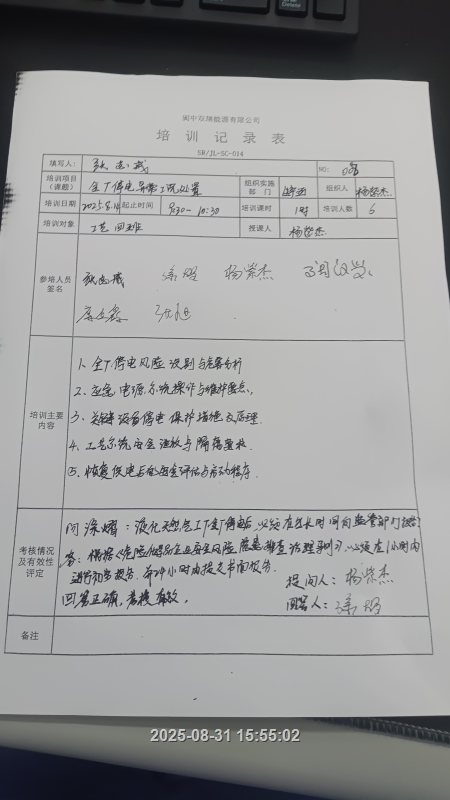 阆中双瑞能源有限公司
培训记录表
SR/JL-SC-014
填写人: NO:
培训项目（课题） 全厂停电异常工况处置 组织实施部门 组织人 杨崇杰
培训日期 2025.8.  起止时间 9:30— 10:30 培训课时 1时 培训人数 6
培训对象 工艺四班 授课人 杨崇杰
参培人员签名 杨崇杰
培训主要内容
1、全厂停电风险识别与危害分析
2、应急电源系统操作与维护要点.
3、关键设备停电保护措施及原理
4、工艺系统安全泄放与隔离要求
⑤、恢复供电后的安全评估与启动程序.
考核情况及有效性评定
问涂熠：液化天然气工厂全厂停电后,必须在多长时间向监管部门报告?
答：根据《危险化学品企业安全风险隐患排查治理导则》,必须在1小时内
进行初步报告.并24小时内提交书面报告.
提问人：杨崇杰
回答正确,考核有效。
回答人：涂熠
备注
2025-08-31 15:55:02